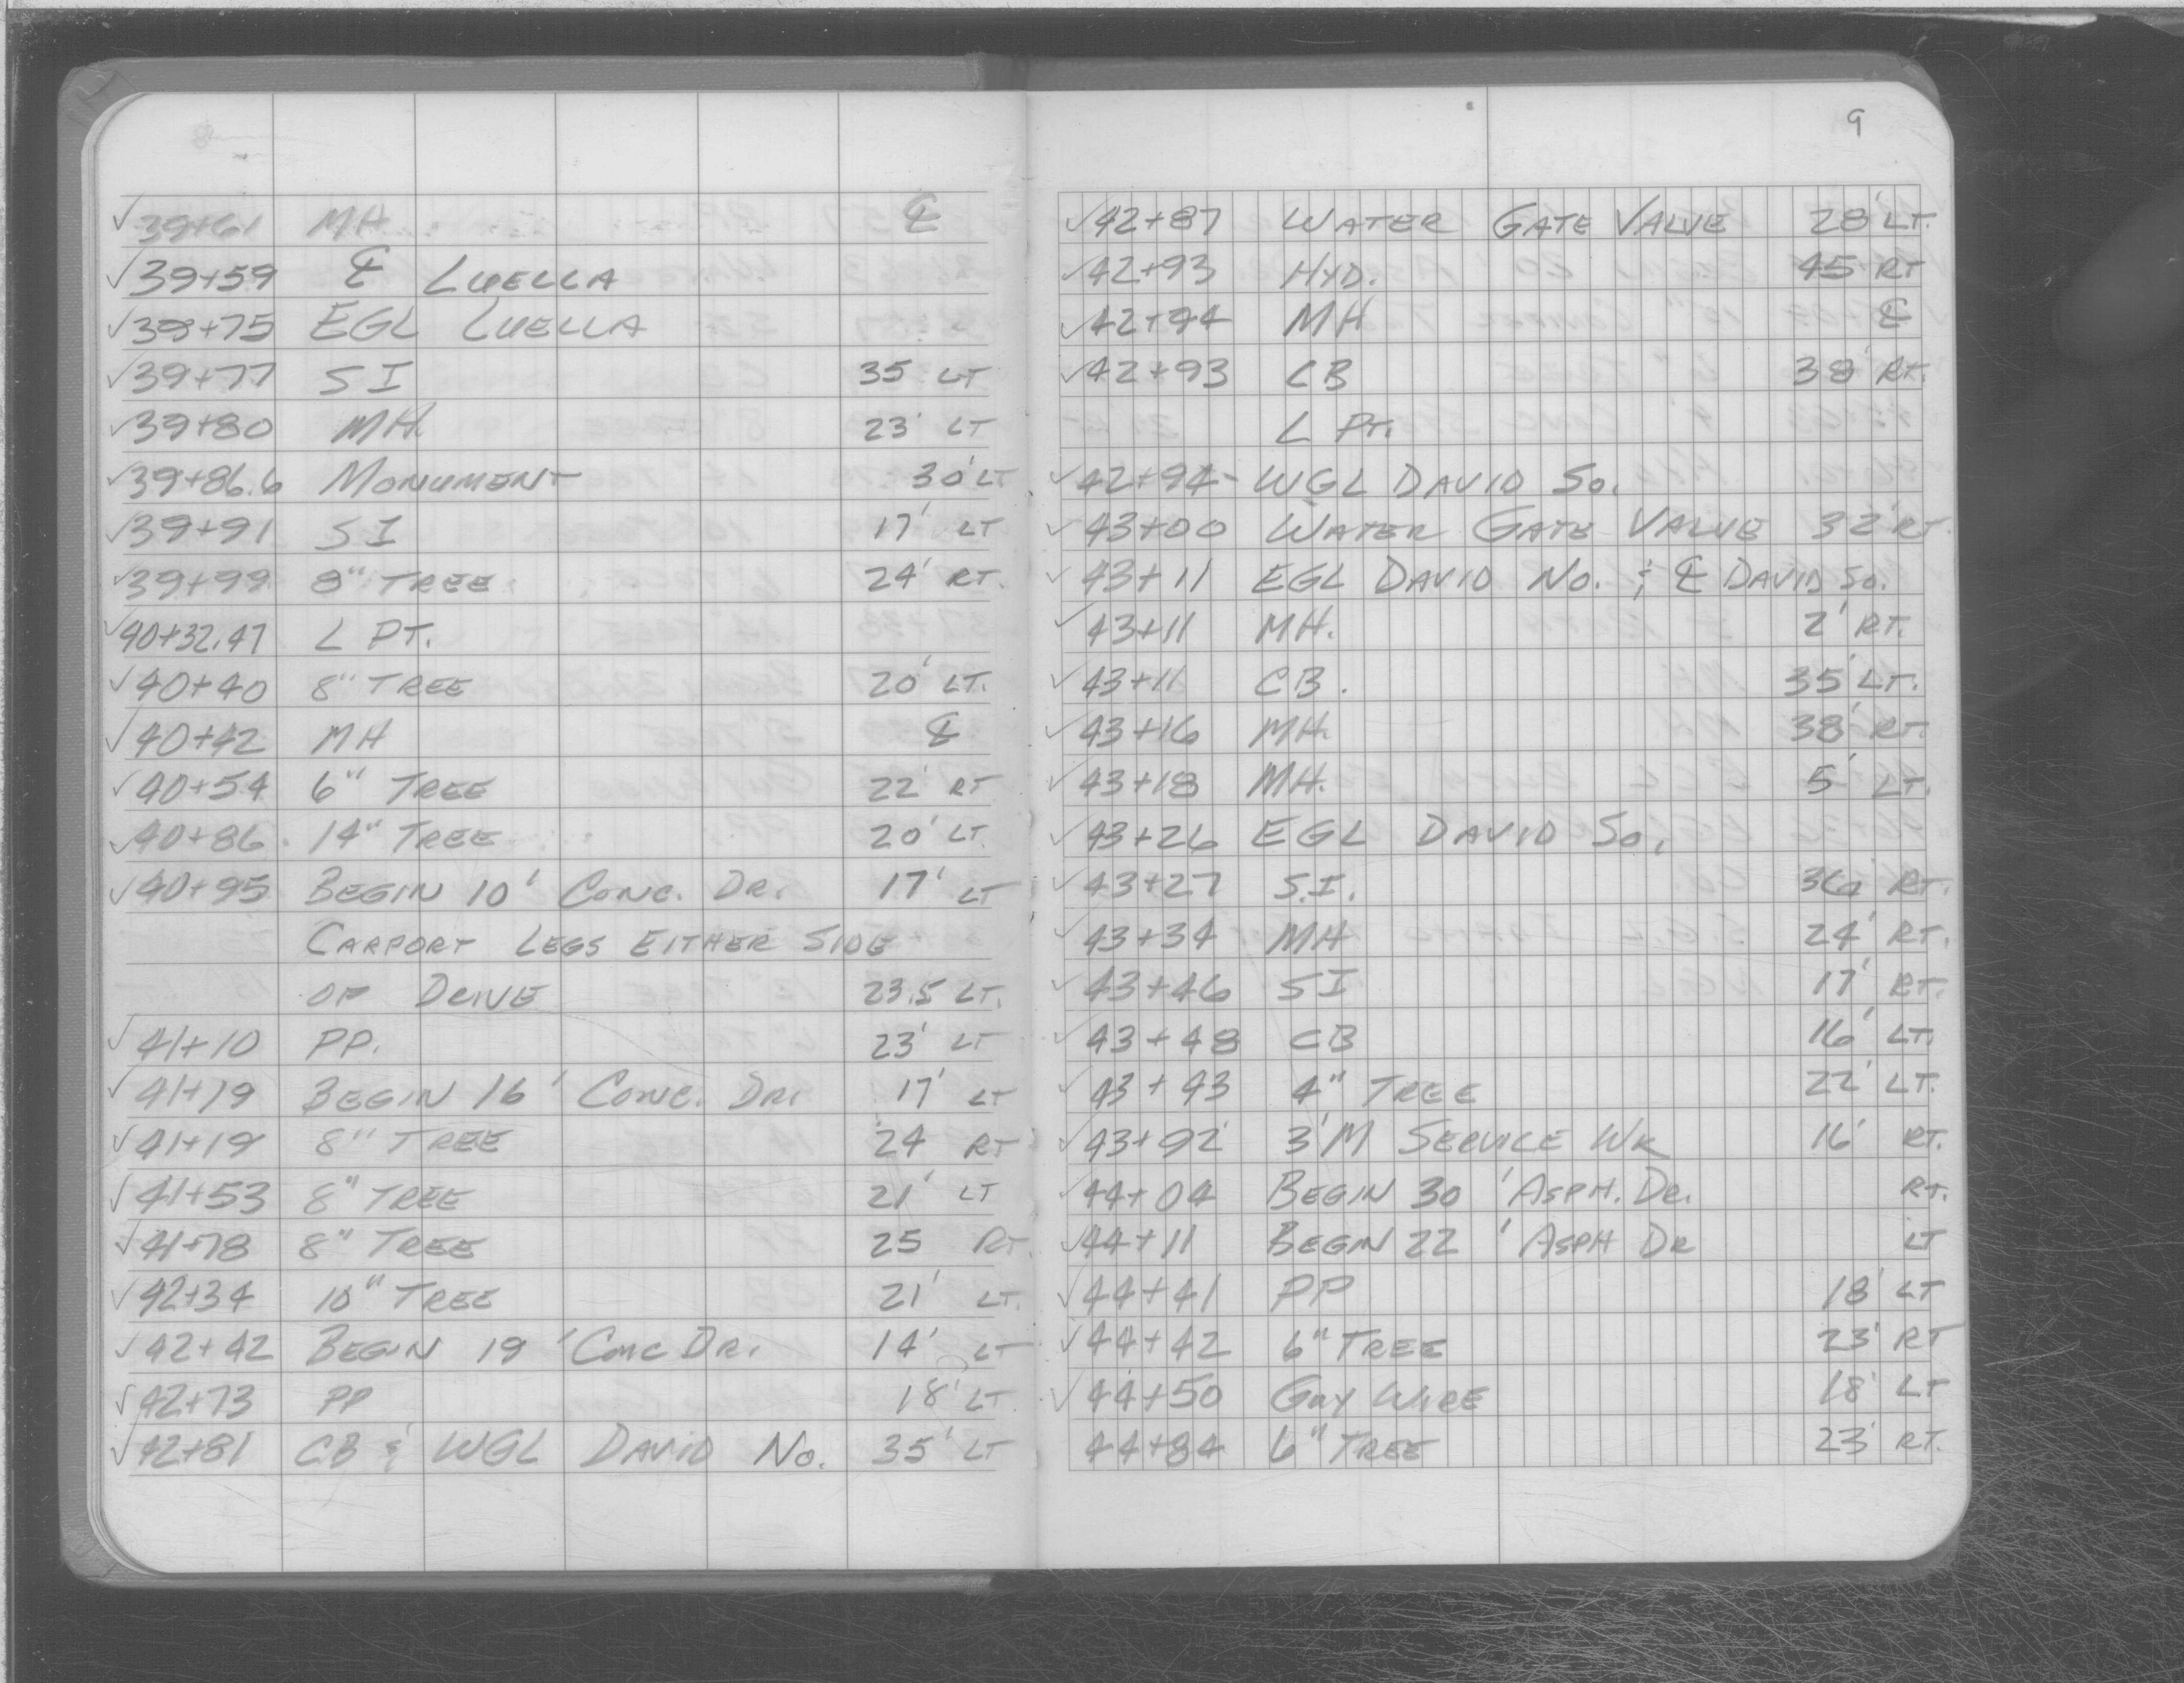 √39+61 MH ℄
√39+59 ℄ LUELLA
√39+75 EGL LUELLA
√39+77 SI 35 LT
√39+80 MH. 23' LT
√39+86.6 MONUMENT 30' LT
√39+91 SI 17' LT
√39+99 8" TREE 24' RT.
√40+32.47 L PT.
√40+40 8" TREE 20' LT.
√40+42 MH ℄
√40+54 6" TREE 22' RT
√40+86 14" TREE 20' LT.
√40+95 BEGIN 10' CONC. DR. 17' LT
CARPORT LEGS EITHER SIDE
OF DRIVE 23.5 LT.
√41+10 PP. 23' LT
√41+19 BEGIN 16' CONC. DR. 17' LT
√41+19 8" TREE 24 RT
√41+53 8" TREE 21' LT
√41+78 8" TREE 25 RT.
√42+34 10" TREE 21' LT.
√42+42 BEGIN 19' CONC DR. 14' LT
√42+73 PP 18' LT.
√42+81 CB & WGL DAVID NO. 35' LT
9
√42+87 WATER GATE VALVE 28' LT.
√42+93 HYD. 45 RT
√42+94 MH ℄
√42+93 CB 38' RT.
L PT.
√42+94- WGL DAVID SO.
√43+00 WATER GATE VALVE 32' RT
√43+11 EGL DAVID NO. & ℄ DAVID SO.
√43+11 MH. 2' RT.
√43+11 CB. 35' LT.
√43+16 MH. 38' RT.
√43+18 MH. 5' LT.
√43+26 EGL DAVID SO.
√43+27 S.I. RT.
√43+34 MH 24' RT.
√43+46 SI 17' RT.
√43+48 CB 16' LT.
√43+93 4" TREE 22' LT.
√43+92 3' M SERVICE WK 16' RT.
√44+04 BEGIN 30' ASPH. DR. RT.
√44+11 BEGIN 22' ASPH DR LT
√44+41 PP 18' LT
√44+42 6" TREE 23' RT
√44+50 GUY WIRE 18' LT
44+84 6" TREE 23' RT.